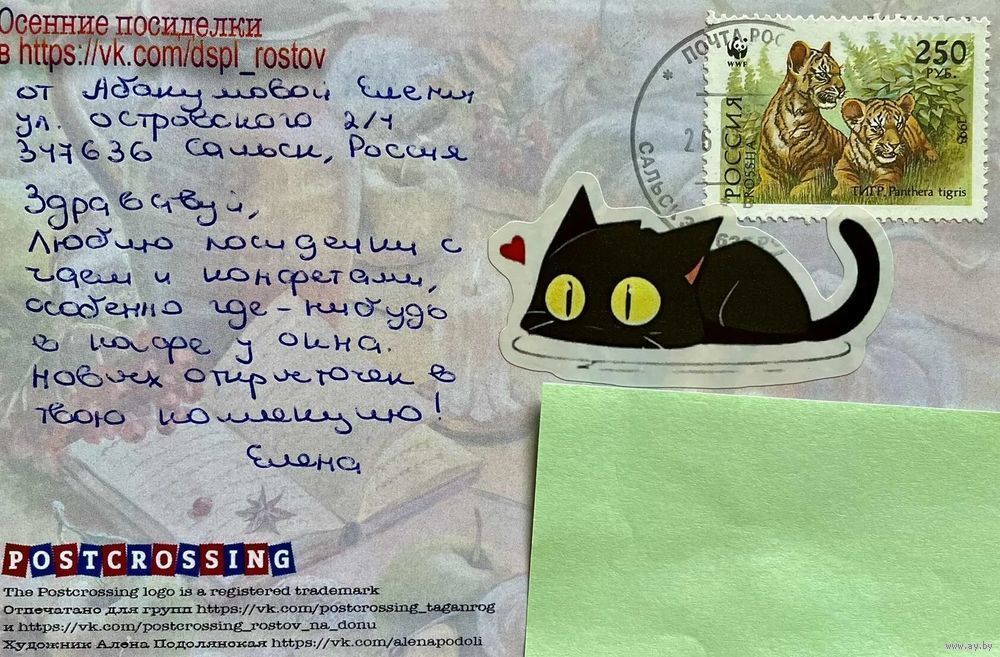 Осенние посиделки
в https://vk.com/dspl_rostov
от Абакумовой Елены
ул. Островского 2/4
347636 Сальск, Россия
Здравствуй,
Люблю посиделки с
чаем и конфетами,
особенно где-нибудь
в кафе у окна.
Новых открыточек в
твою коллекцию!
Елена
ПОЧТА РОС
26
САЛЬСК
РОССИЯ
ROSSIJA
WWF
250
РУБ.
1993
ТИГР. Panthera tigris
POSTCROSSING
The Postcrossing logo is a registered trademark
Отпечатано для групп https://vk.com/postcrossing_taganrog
и https://vk.com/postcrossing_rostov_na_donu
Художник Алена Подолянская https://vk.com/alenapodoli
www.ay.by